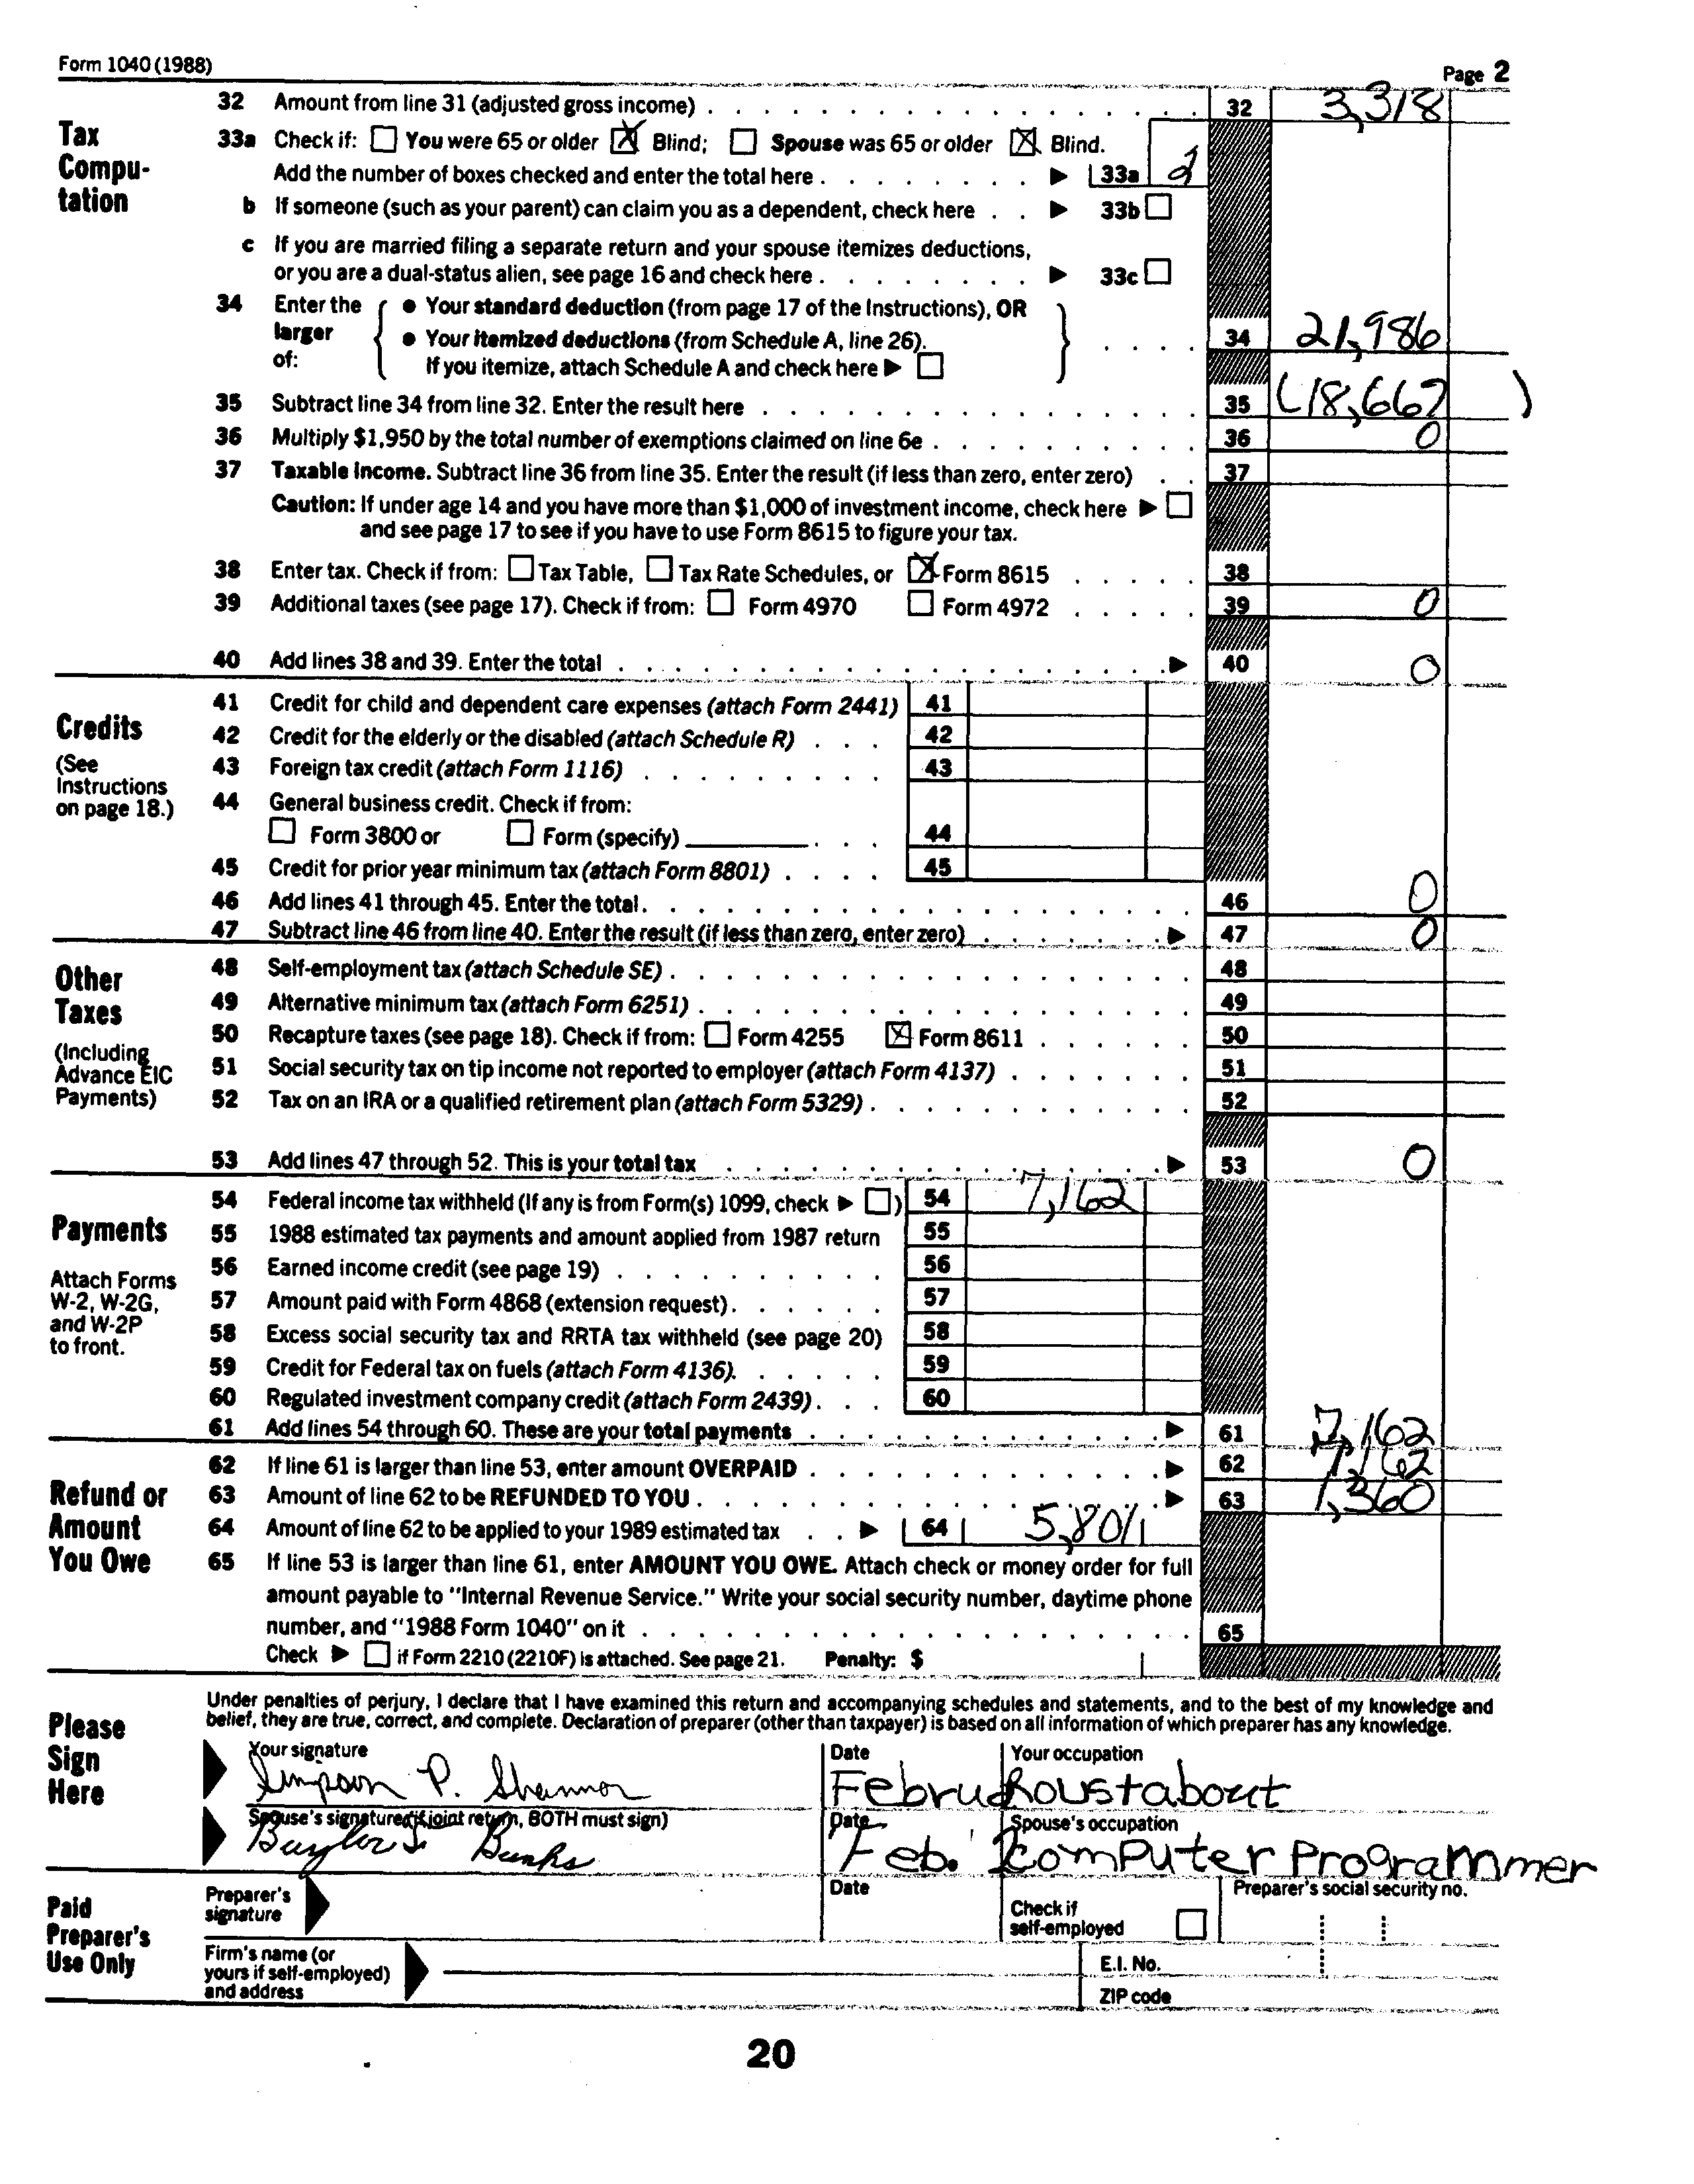 Form 1040 (1988)
Page 2
Tax Compu-tation
32 Amount from line 31 (adjusted gross income) 32 3,318
33a Check if: You were 65 or older X Blind; Spouse was 65 or older X Blind.
Add the number of boxes checked and enter the total here 33a 2
b If someone (such as your parent) can claim you as a dependent, check here 33b
c If you are married filing a separate return and your spouse itemizes deductions,
or you are a dual-status alien, see page 16 and check here 33c
34 Enter the larger of: • Your standard deduction (from page 17 of the Instructions), OR
• Your itemized deductions (from Schedule A, line 26).
If you itemize, attach Schedule A and check here 34 21,986
35 Subtract line 34 from line 32. Enter the result here 35 (18,667)
36 Multiply $1,950 by the total number of exemptions claimed on line 6e 36 0
37 Taxable income. Subtract line 36 from line 35. Enter the result (if less than zero, enter zero) 37
Caution: If under age 14 and you have more than $1,000 of investment income, check here
and see page 17 to see if you have to use Form 8615 to figure your tax.
38 Enter tax. Check if from: Tax Table, Tax Rate Schedules, or X Form 8615 38
39 Additional taxes (see page 17). Check if from: Form 4970 Form 4972 39 0
40 Add lines 38 and 39. Enter the total 40 0
Credits
(See Instructions on page 18.)
41 Credit for child and dependent care expenses (attach Form 2441) 41
42 Credit for the elderly or the disabled (attach Schedule R) 42
43 Foreign tax credit (attach Form 1116) 43
44 General business credit. Check if from:
Form 3800 or Form (specify) 44
45 Credit for prior year minimum tax (attach Form 8801) 45
46 Add lines 41 through 45. Enter the total 46 0
47 Subtract line 46 from line 40. Enter the result (if less than zero, enter zero) 47 0
Other Taxes
(Including Advance EIC Payments)
48 Self-employment tax (attach Schedule SE) 48
49 Alternative minimum tax (attach Form 6251) 49
50 Recapture taxes (see page 18). Check if from: Form 4255 X Form 8611 50
51 Social security tax on tip income not reported to employer (attach Form 4137) 51
52 Tax on an IRA or a qualified retirement plan (attach Form 5329) 52
53 Add lines 47 through 52. This is your total tax 53 0
Payments
Attach Forms W-2, W-2G, and W-2P to front.
54 Federal income tax withheld (If any is from Form(s) 1099, check ) 54 7,162
55 1988 estimated tax payments and amount applied from 1987 return 55
56 Earned income credit (see page 19) 56
57 Amount paid with Form 4868 (extension request) 57
58 Excess social security tax and RRTA tax withheld (see page 20) 58
59 Credit for Federal tax on fuels (attach Form 4136). 59
60 Regulated investment company credit (attach Form 2439) 60
61 Add lines 54 through 60. These are your total payments 61 7,162
Refund or Amount You Owe
62 If line 61 is larger than line 53, enter amount OVERPAID 62 7,162
63 Amount of line 62 to be REFUNDED TO YOU 63 1,360
64 Amount of line 62 to be applied to your 1989 estimated tax 64 5,801
65 If line 53 is larger than line 61, enter AMOUNT YOU OWE. Attach check or money order for full
amount payable to "Internal Revenue Service." Write your social security number, daytime phone
number, and "1988 Form 1040" on it 65
Check if Form 2210 (2210F) is attached. See page 21. Penalty: $
Please Sign Here
Under penalties of perjury, I declare that I have examined this return and accompanying schedules and statements, and to the best of my knowledge and
belief, they are true, correct, and complete. Declaration of preparer (other than taxpayer) is based on all information of which preparer has any knowledge.
Your signature Date Your occupation
Simpson P. Shannon Februa Roustabout
Spouse's signature (if joint return, BOTH must sign) Date Spouse's occupation
Baylor J. Bunks Feb. Computer Programmer
Paid Preparer's Use Only
Preparer's signature Date Check if self-employed Preparer's social security no.
Firm's name (or yours if self-employed) and address
E.I. No.
ZIP code
20